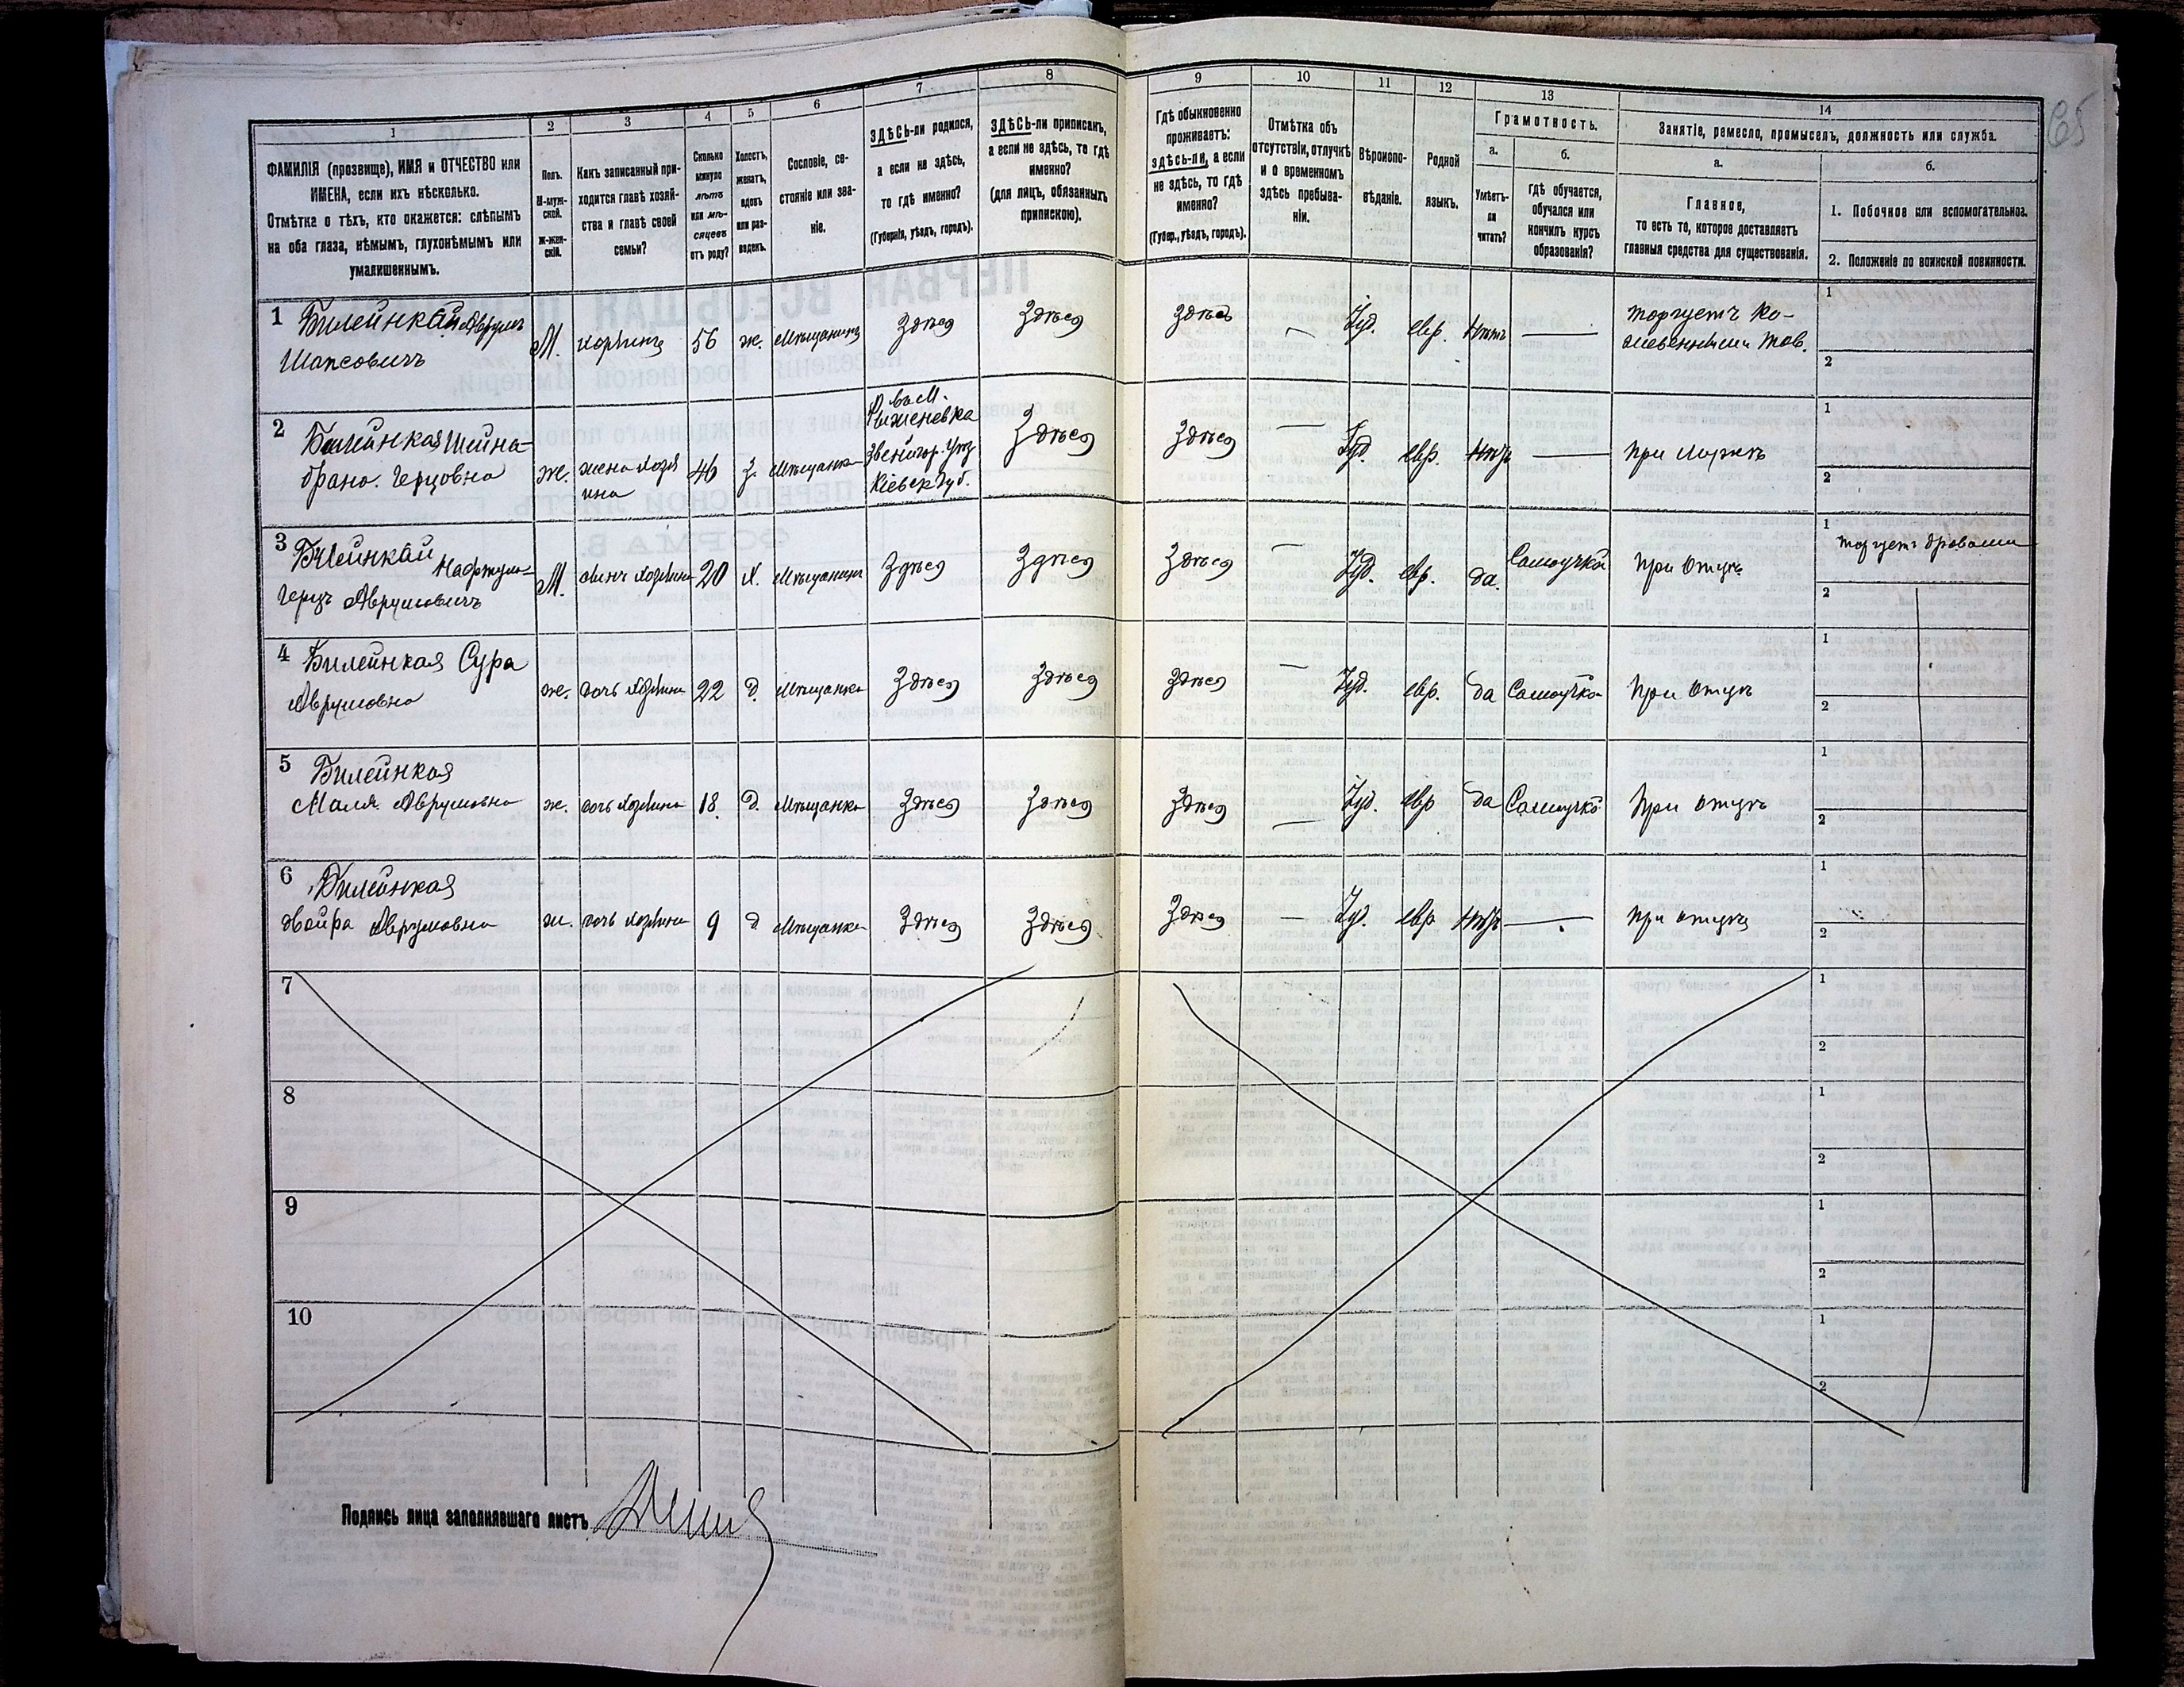 1
ФАМИЛІЯ (прозвище), ИМЯ и ОТЧЕСТВО или
ИМЕНА, если ихъ нѣсколько.
Отмѣтка о тѣхъ, кто окажется: слѣпымъ
на оба глаза, нѣмымъ, глухонѣмымъ или
умалишеннымъ.
2
Полъ.
М-муж-
ской.
ж-жен-
скій.
3
Какъ записанный при-
ходится главѣ хозяй-
ства и главѣ своей
семьи?
4
Сколько
минуло
лѣтъ
или мѣ-
сяцевъ
отъ роду?
5
Холостъ,
женатъ,
вдовъ
или раз-
веденъ.
6
Сословіе, со-
стояніе или зва-
ніе.
7
ЗДѢСЬ-ли родился,
а если не здѣсь,
то гдѣ именно?
(Губернія, уѣздъ, городъ).
8
ЗДѢСЬ-ли приписанъ,
а если не здѣсь, то гдѣ
именно?
(для лицъ, обязанныхъ
припискою).
9
Гдѣ обыкновенно
проживаетъ:
здѣсь-ли, а если
не здѣсь, то гдѣ
именно?
(Губер., уѣздъ, городъ).
10
Отмѣтка объ
отсутствіи, отлучкѣ
и о временномъ
здѣсь пребыва-
ніи.
11
Вѣроиспо-
вѣданіе.
12
Родной
языкъ.
13
Грамотность.
а.
Умѣетъ-
ли
читать?
б.
гдѣ обучается,
обучался или
кончилъ курсъ
образованія?
14
Занятіе, ремесло, промыселъ, должность или служба.
а.
Главное,
то есть то, которое доставляетъ
главныя средства для существованія.
б.
1. Побочное или вспомогательное.
2. Положеніе по воинской повинности.
65
1 Билейнкай Аврумъ
Шапсовичъ
М. хозяинъ 56 ж. Мѣщанинъ Здѣсь Здѣсь Здѣсь — Іуд. евр. Нѣтъ — торгуетъ ко-
жевенными тов.
1
2
2 Билейнкая Шейна-
Брана Герцовна
ж. жена хозя
ина 46 з. Мѣщанка
въ М.
Рыженевка
Звенигор. Уѣз
Кіевск Губ.
Здѣсь Здѣсь — Іуд. евр. Нѣтъ — при мужѣ
1
2
3 Билейнкай Нафтула-
Герцъ Аврумовичъ
М. сынъ хозяина 20 х. Мѣщанинъ Здѣсь Здѣсь Здѣсь — Іуд. евр. да Самоучка при отцѣ
1 торгуетъ дровами
2
4 Билейнкая Сура
Аврумовна
ж. дочь хозяина 22 д. Мѣщанка Здѣсь Здѣсь Здѣсь — Іуд. евр. да Самоучка при отцѣ
1
2
5 Билейнкая
Маля Аврумовна
ж. дочь хозяина 18. д. Мѣщанка Здѣсь Здѣсь Здѣсь — Іуд. евр да Самоучка при отцѣ
1
2
6 Билейнкая
Двойра Аврумовна
ж. дочь хозяина 9 д Мѣщанка Здѣсь Здѣсь Здѣсь — Іуд. евр. Нѣтъ — при отцѣ
1
2
7
1
2
8
1
2
9
1
2
10
1
2
Подпись лица заполнявшаго листъ